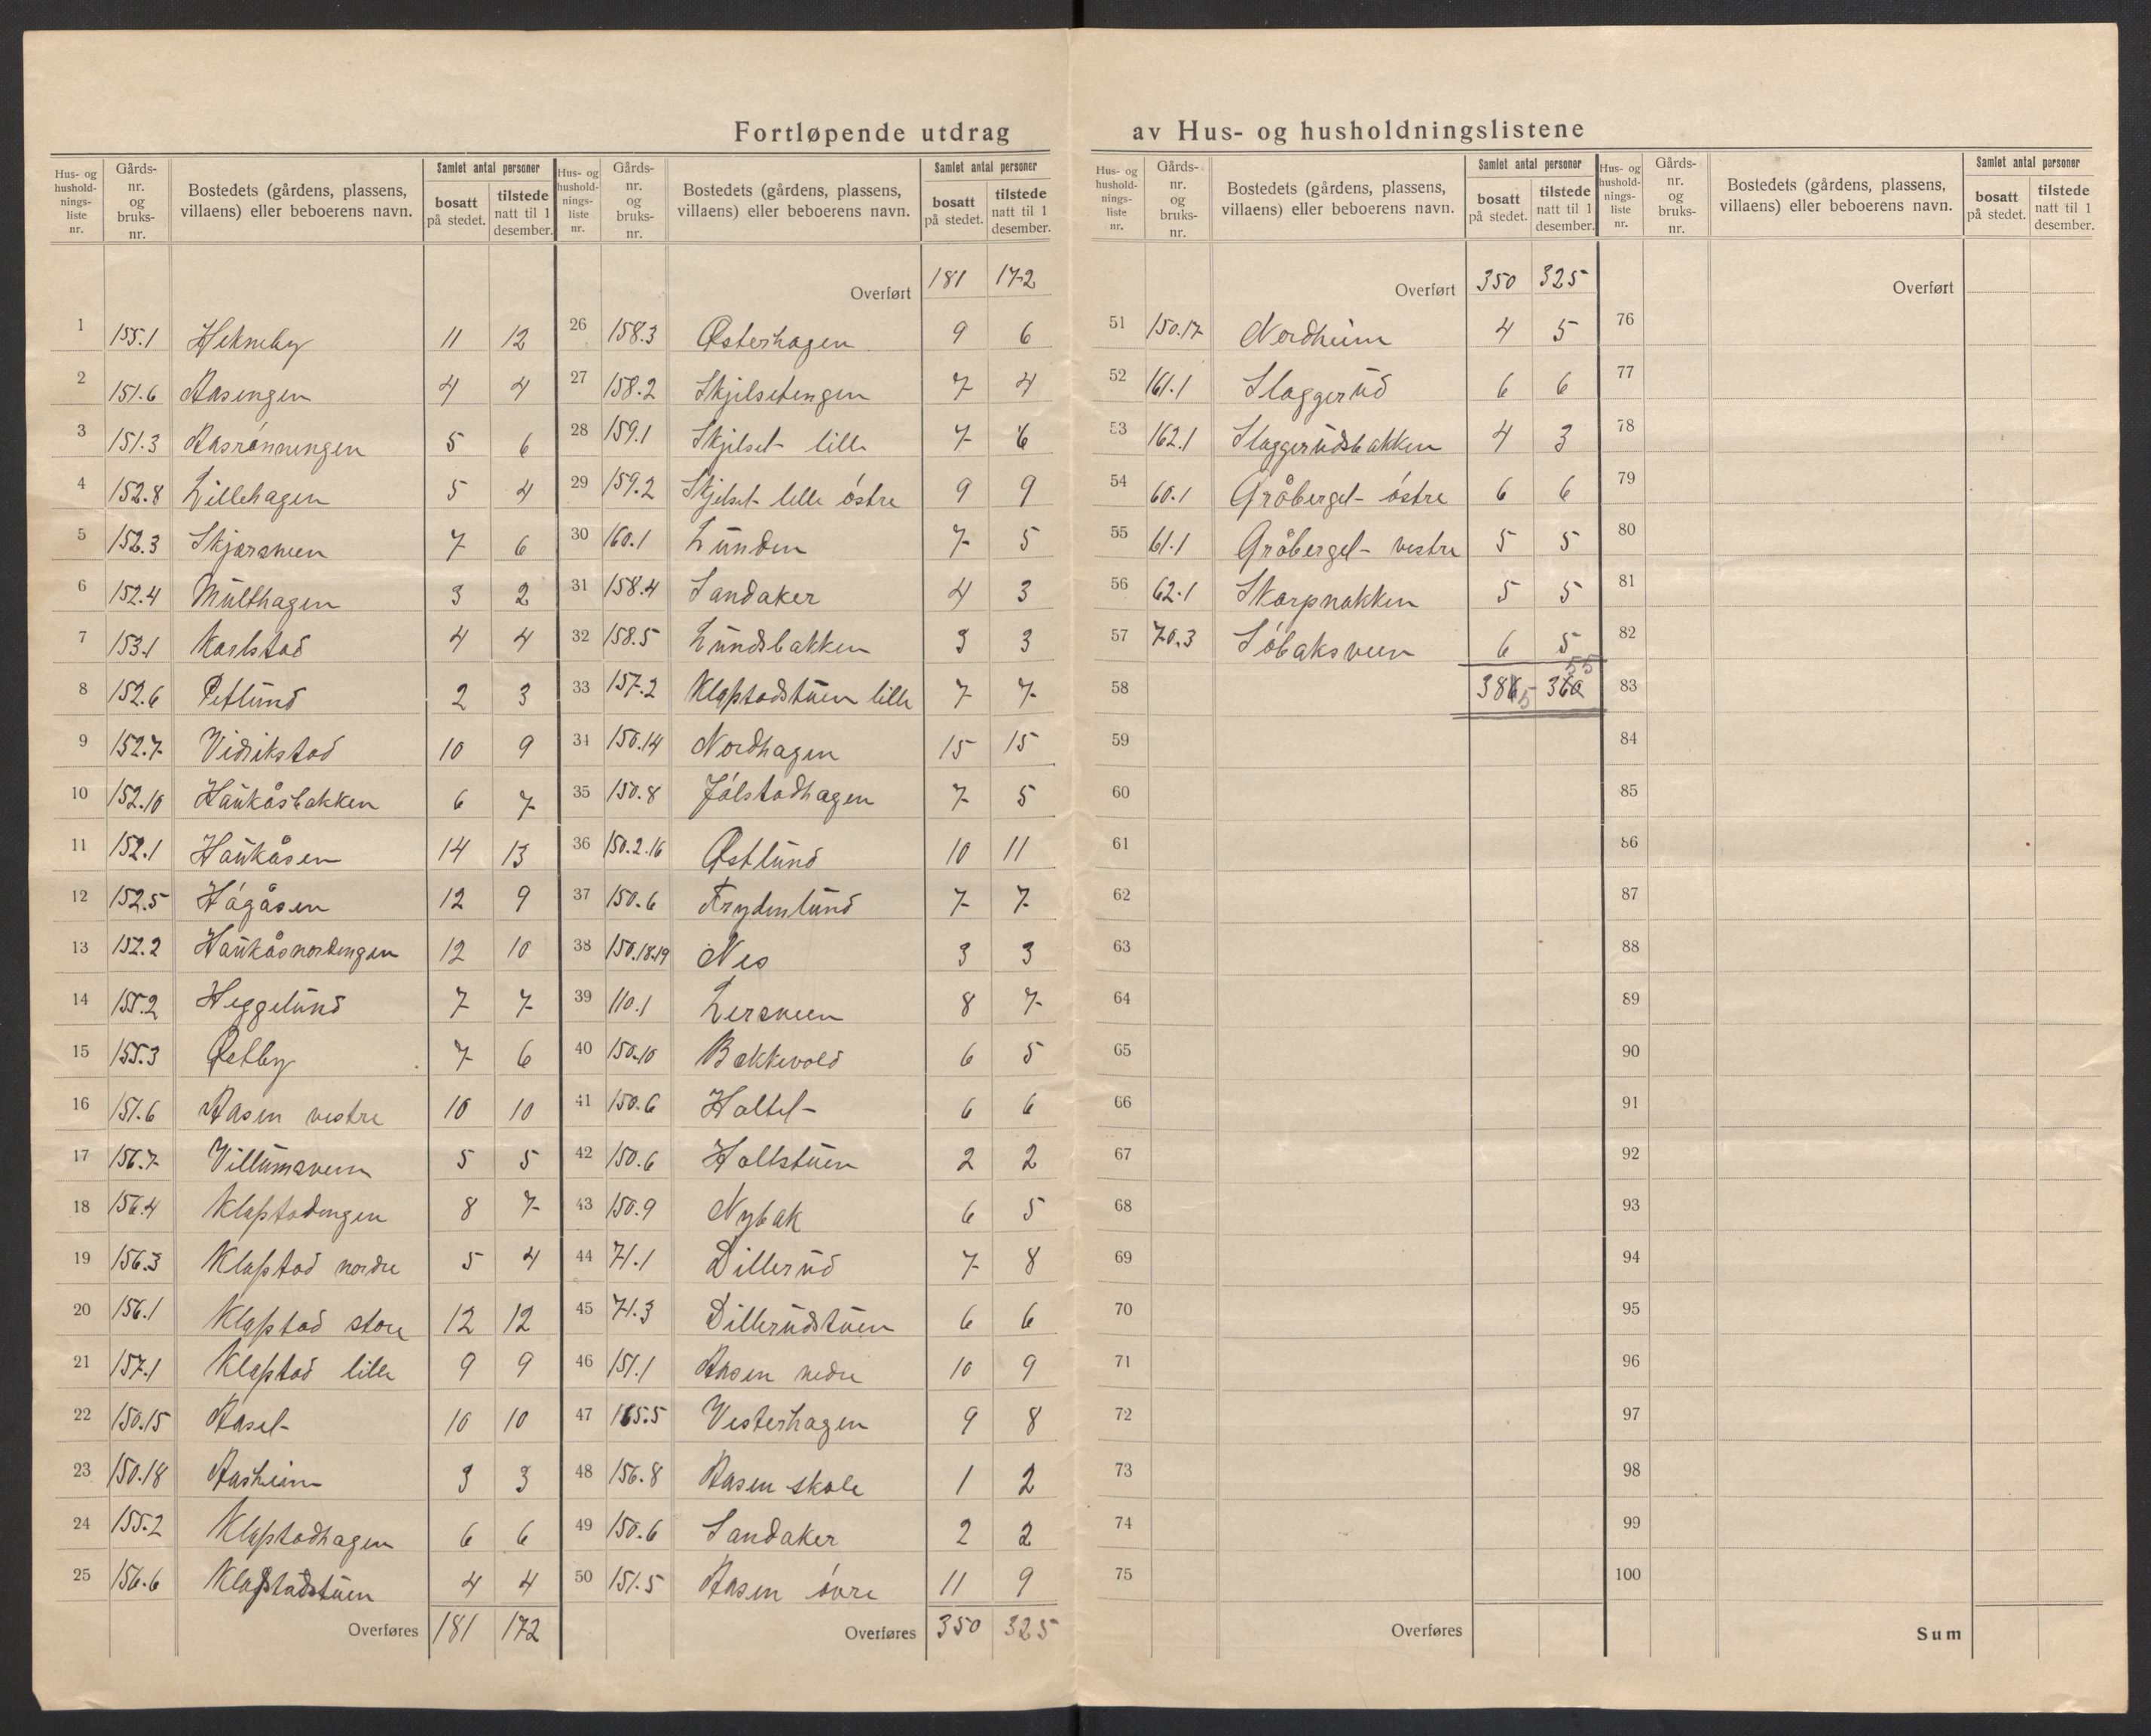 Fortløpende utdrag av Hus- og husholdningslistene
Hus- og hushold-nings-liste nr. | Gårds-nr. og bruks-nr. | Bostedets (gårdens, plassens, villaens) eller beboerens navn. | Samlet antal personer | bosatt på stedet. | tilstede natt til 1 desember.
1 155.1 Hekneby 11 12
2 151.6 Aasengen 4 4
3 151.3 Aasrønningen 5 6
4 152.8 Lillehagen 5 4
5 152.3 Skjærsveen 7 6
6 152.4 Multhagen 3 2
7 153.1 Karlstad 4 4
8 152.6 Petlund 2 3
9 152.7 Vidrikstad 10 9
10 152.10 Haukåsbakken 6 7
11 152.1 Haukåsen 14 13
12 152.5 Høgåsen 12 9
13 152.2 Haukåsnordengen 12 10
14 155.2 Heggelund 7 7
15 155.3 Østby 7 6
16 151.6 Aasen vestre 10 10
17 156.7 Villumsveen 5 5
18 156.4 Klapstadengen 8 7
19 156.3 Klapstad nordre 5 4
20 156.1 Klapstad store 12 12
21 157.1 Klapstad lille 9 9
22 150.15 Aaset 10 10
23 150.18 Aasheim 3 3
24 155.2 Klapstadhagen 6 6
25 156.6 Klapstadstuen 4 4
Overføres 181 172
Hus- og hushold-nings-liste nr. | Gårds-nr. og bruks-nr. | Bostedets (gårdens, plassens, villaens) eller beboerens navn. | Samlet antal personer | bosatt på stedet. | tilstede natt til 1 desember.
Overført 181 172
26 158.3 Østerhagen 9 6
27 158.2 Skjelsetengen 7 4
28 159.1 Skjelset lille 7 6
29 159.2 Skjelset lille østre 9 9
30 160.1 Lunden 7 5
31 158.4 Sandaker 4 3
32 158.5 Lundsbakken 3 3
33 157.2 Klapstadstuen lille 7 7
34 150.14 Nordhagen 15 15
35 150.8 Jølstadhagen 7 5
36 150.2.16 Østlund 10 11
37 150.6 Frydenlund 7 7
38 150.18.19 Nes 3 3
39 110.1 Lersveen 8 7
40 150.10 Bakkevold 6 5
41 150.6 Holtet 6 6
42 150.6 Holtstuen 2 2
43 150.9 Nybak 6 5
44 71.1 Dillerud 7 8
45 71.3 Dillerudstuen 6 6
46 151.1 Aasen nedre 10 9
47 165.5 Vesterhagen 9 8
48 156.8 Aasen skole 1 2
49 150.6 Sandaker 2 2
50 151.5 Aasen øvre 11 9
Overføres 350 325
Hus- og hushold-nings-liste nr. | Gårds-nr. og bruks-nr. | Bostedets (gårdens, plassens, villaens) eller beboerens navn. | Samlet antal personer | bosatt på stedet. | tilstede natt til 1 desember.
Overført 350 325
51 150.17 Nordheim 4 5
52 161.1 Slaggerud 6 6
53 162.1 Slaggerudsbakken 4 3
54 60.1 Gråberget østre 6 6
55 61.1 Gråberget vestre 5 5
56 62.1 Skarpnakken 5 5
57 70.3 Søbaksveen 6 5
58 386 5 360 55
59
60
61
62
63
64
65
66
67
68
69
70
71
72
73
74
75
Overføres
Hus- og hushold-nings-liste nr. | Gårds-nr. og bruks-nr. | Bostedets (gårdens, plassens, villaens) eller beboerens navn. | Samlet antal personer | bosatt på stedet. | tilstede natt til 1 desember.
Overført
76
77
78
79
80
81
82
83
84
85
86
87
88
89
90
91
92
93
94
95
96
97
98
99
100
Sum